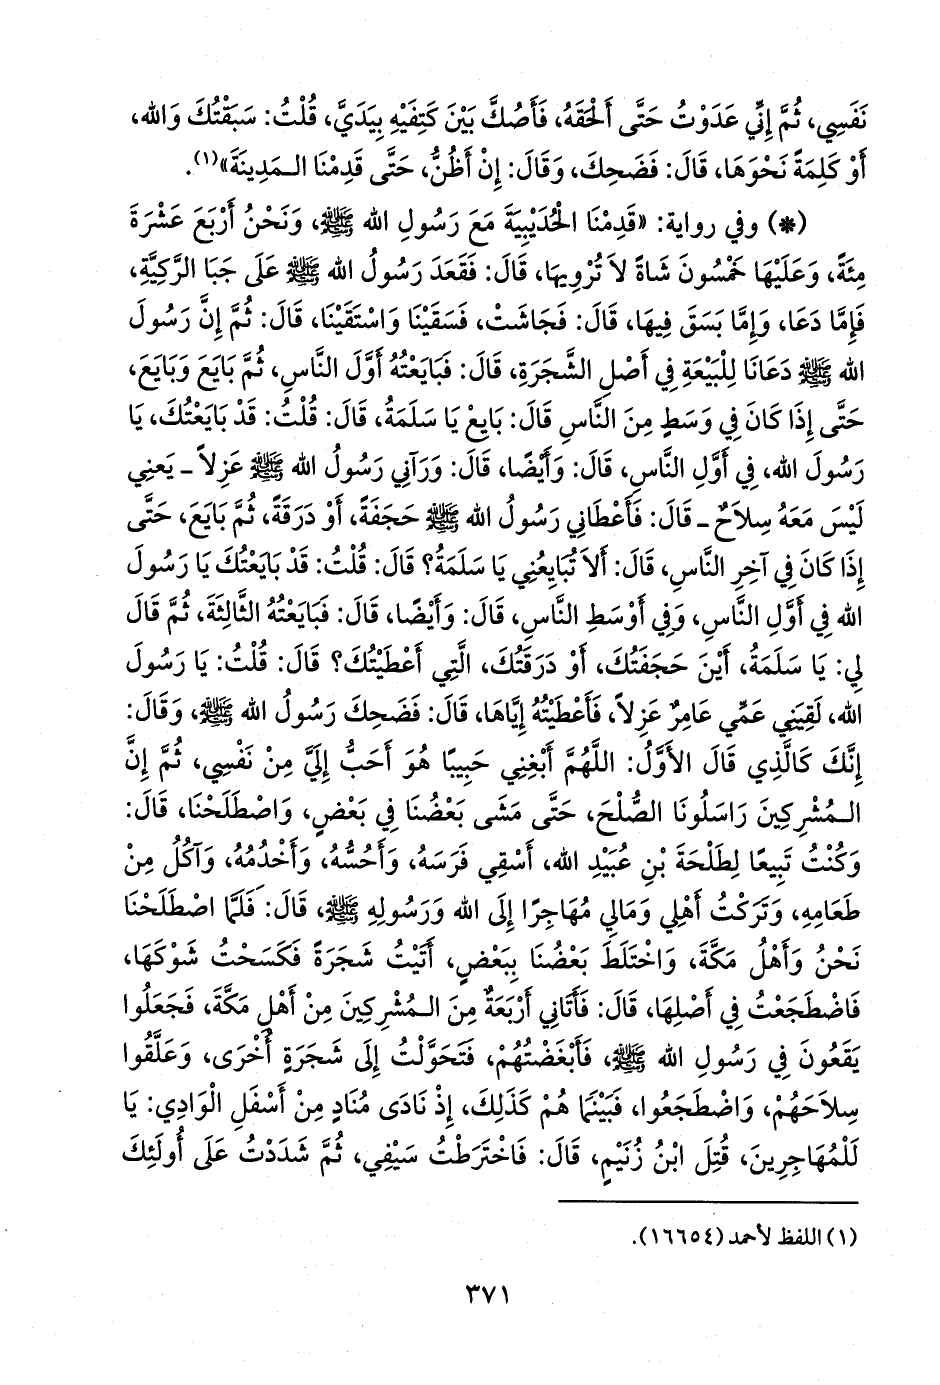 نَفَسِي، ثُمَّ إِنِّي عَدَوْتُ حَتَّى أَلْحَقَهُ، فَأَصُكَّ بَيْنَ كَتِفَيْهِ بِيَدَيَّ، قُلْتُ: سَبَقْتُكَ وَالله،
أَوْ كَلِمَةً نَحْوَهَا، قَالَ: فَضَحِكَ، وَقَالَ: إِنْ أَظُنُّ، حَتَّى قَدِمْنَا الـمَدِينَةَ»(١).
(*) وفي رواية: «قَدِمْنَا الْحُدَيْبِيَةَ مَعَ رَسُولِ الله ﷺ، وَنَحْنُ أَرْبَعَ عَشْرَةَ
مِئَةً، وَعَلَيْهَا خَمْسُونَ شَاةً لاَ تُرْوِيهَا، قَالَ: فَقَعَدَ رَسُولُ الله ﷺ عَلَى جَبَا الرَّكِيَّةِ،
فَإِمَّا دَعَا، وَإِمَّا بَسَقَ فِيهَا، قَالَ: فَجَاشَتْ، فَسَقَيْنَا وَاسْتَقَيْنَا، قَالَ: ثُمَّ إِنَّ رَسُولَ
الله ﷺ دَعَانَا لِلْبَيْعَةِ فِي أَصْلِ الشَّجَرَةِ، قَالَ: فَبَايَعْتُهُ أَوَّلَ النَّاسِ، ثُمَّ بَايَعَ وَبَايَعَ،
حَتَّى إِذَا كَانَ فِي وَسَطٍ مِنَ النَّاسِ قَالَ: بَايِعْ يَا سَلَمَةُ، قَالَ: قُلْتُ: قَدْ بَايَعْتُكَ، يَا
رَسُولَ الله، فِي أَوَّلِ النَّاسِ، قَالَ: وَأَيْضًا، قَالَ: وَرَآنِي رَسُولُ الله ﷺ عَزِلاً ـ يَعنِي
لَيْسَ مَعَهُ سِلاَحٌ ـ قَالَ: فَأَعْطَانِي رَسُولُ الله ﷺ حَجَفَةً، أَوْ دَرَقَةً، ثُمَّ بَايَعَ، حَتَّى
إِذَا كَانَ فِي آخِرِ النَّاسِ، قَالَ: أَلاَ تُبَايِعُنِي يَا سَلَمَةُ؟ قَالَ: قُلْتُ: قَدْ بَايَعْتُكَ يَا رَسُولَ
الله فِي أَوَّلِ النَّاسِ، وَفِي أَوْسَطِ النَّاسِ، قَالَ: وَأَيْضًا، قَالَ: فَبَايَعْتُهُ الثَّالِثَةَ، ثُمَّ قَالَ
لِي: يَا سَلَمَةُ، أَيْنَ حَجَفَتُكَ، أَوْ دَرَقَتُكَ، الَّتِي أَعْطَيْتُكَ؟ قَالَ: قُلْتُ: يَا رَسُولَ
الله، لَقِيَنِي عَمِّي عَامِرٌ عَزِلاً، فَأَعْطَيْتُهُ إِيَّاهَا، قَالَ: فَضَحِكَ رَسُولُ الله ﷺ، وَقَالَ:
إِنَّكَ كَالَّذِي قَالَ الأَوَّلُ: اللَّهُمَّ أَبْغِنِي حَبِيبًا هُوَ أَحَبُّ إِلَيَّ مِنْ نَفْسِي، ثُمَّ إِنَّ
الـمُشْرِكِينَ رَاسَلُونَا الصُّلْحَ، حَتَّى مَشَى بَعْضُنَا فِي بَعْضٍ، وَاصْطَلَحْنَا، قَالَ:
وَكُنْتُ تَبِيعًا لِطَلْحَةَ بْنِ عُبَيْدِ الله، أَسْقِي فَرَسَهُ، وَأَحُسُّهُ، وَأَخْدُمُهُ، وَآكُلُ مِنْ
طَعَامِهِ، وَتَرَكْتُ أَهْلِي وَمَالِي مُهَاجِرًا إِلَى الله وَرَسُولِهِ ﷺ، قَالَ: فَلَمَّا اصْطَلَحْنَا
نَحْنُ وَأَهْلُ مَكَّةَ، وَاخْتَلَطَ بَعْضُنَا بِبَعْضٍ، أَتَيْتُ شَجَرَةً فَكَسَحْتُ شَوْكَهَا،
فَاضْطَجَعْتُ فِي أَصْلِهَا، قَالَ: فَأَتَانِي أَرْبَعَةٌ مِنَ الـمُشْرِكِينَ مِنْ أَهْلِ مَكَّةَ، فَجَعَلُوا
يَقَعُونَ فِي رَسُولِ الله ﷺ، فَأَبْغَضْتُهُمْ، فَتَحَوَّلْتُ إِلَى شَجَرَةٍ أُخْرَى، وَعَلَّقُوا
سِلاَحَهُمْ، وَاضْطَجَعُوا، فَبَيْنَمَا هُمْ كَذَلِكَ، إِذْ نَادَى مُنَادٍ مِنْ أَسْفَلِ الْوَادِي: يَا
لَلْمُهَاجِرِينَ، قُتِلَ ابْنُ زُنَيْمٍ، قَالَ: فَاخْتَرَطْتُ سَيْفِي، ثُمَّ شَدَدْتُ عَلَى أُولَئِكَ
(١) اللفظ لأحمد (١٦٦٥٤).
٣٧١